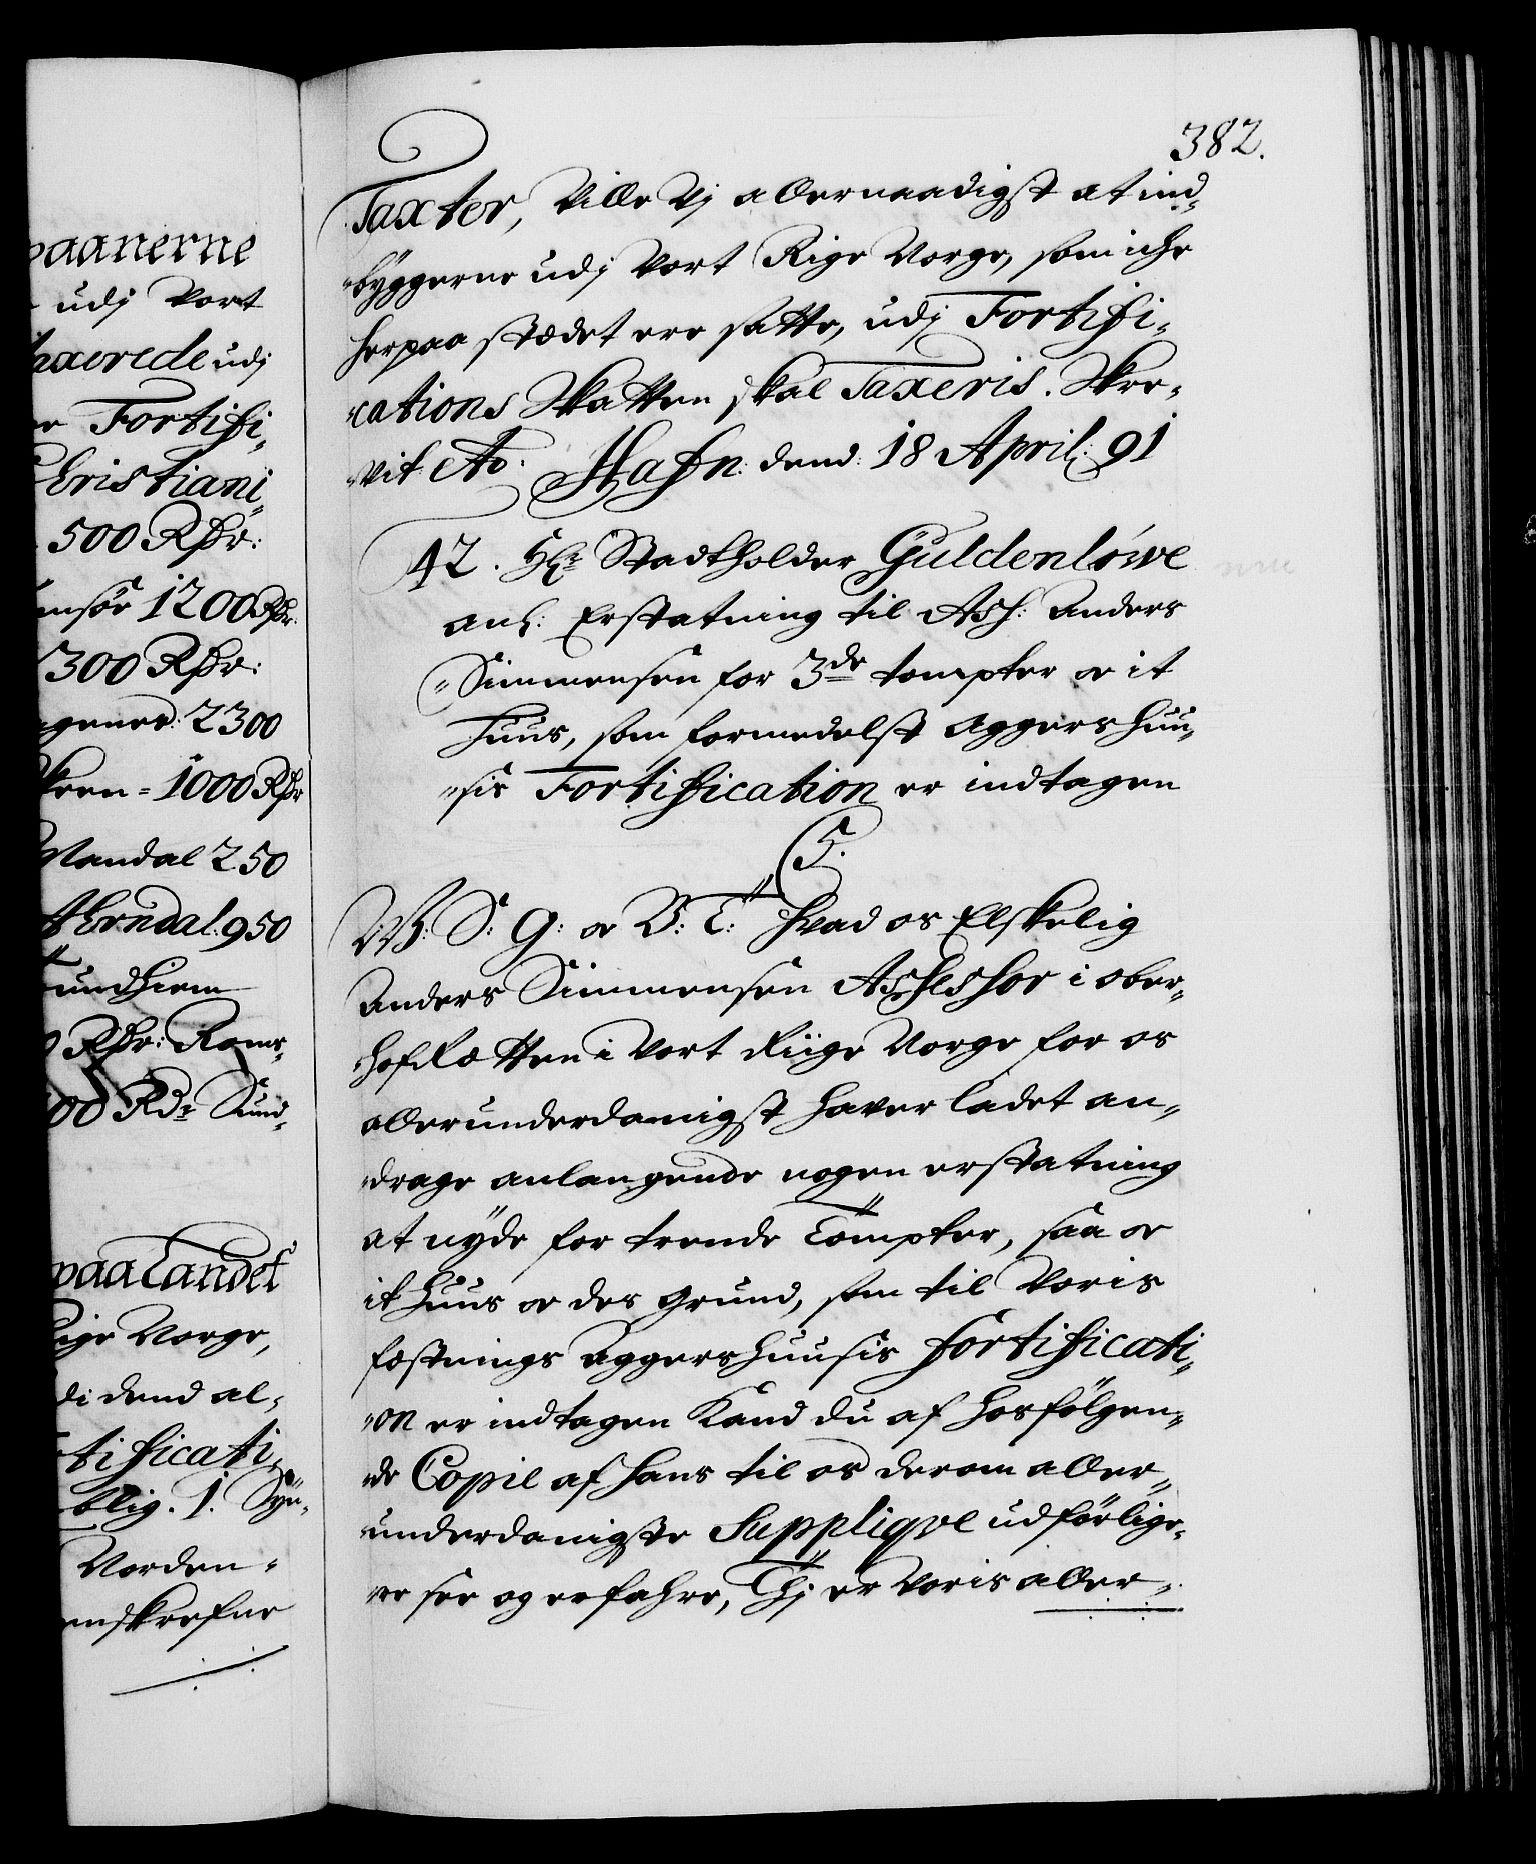 paanerne
udj Vort
taxerede udj
Fortifi-
Christiani-
500 Rdr:
1200 Rdr:
300 Rdr:
2300
1000 Rdr
Mandal 250
Arendal 950
undhiem
Rdr: Roms-
00 Rdr Sund-
paa Landet
Rige Norge,
di dend al-
tificati-
blig. 1. Syn-
Norden-
enskrefne
382.
Taxter, Ville Vj allernaadigst at ind-
byggerne udj Vort Rige Norge, som iche
herpaa stædet ere satte, udj Fortifi-
cations Skatten skal Taxeris. Skre-
vit etc. Hafn: dend: 18 April: 91
42. Hr: Stadtholder Guldenlöwe
anl: Erstatning til Ass: Anders
Simmensen for 3de tompter oc it
Huus, som formedelst Aggershuu-
sis Fortification er indtagen
C5.
W: S: G: oc V: T: Hvad os Elskelig
Anders Simmensen Assessor i ober-
hofRetten i Vort Riige Norge for os
allerunderdanigst haver ladet an-
drage anlangende nogen erstatning
at nyde for trende Tompter, saa oc
it Huus oc des Grund, som til Voris
festnings Aggershuusis Fortificati-
on er indtagen Kand du af hosfølgen-
de Copie af hans til os derom aller-
underdanigste Supplique udførlige-
re see og erfahre, Thj er Voris aller-